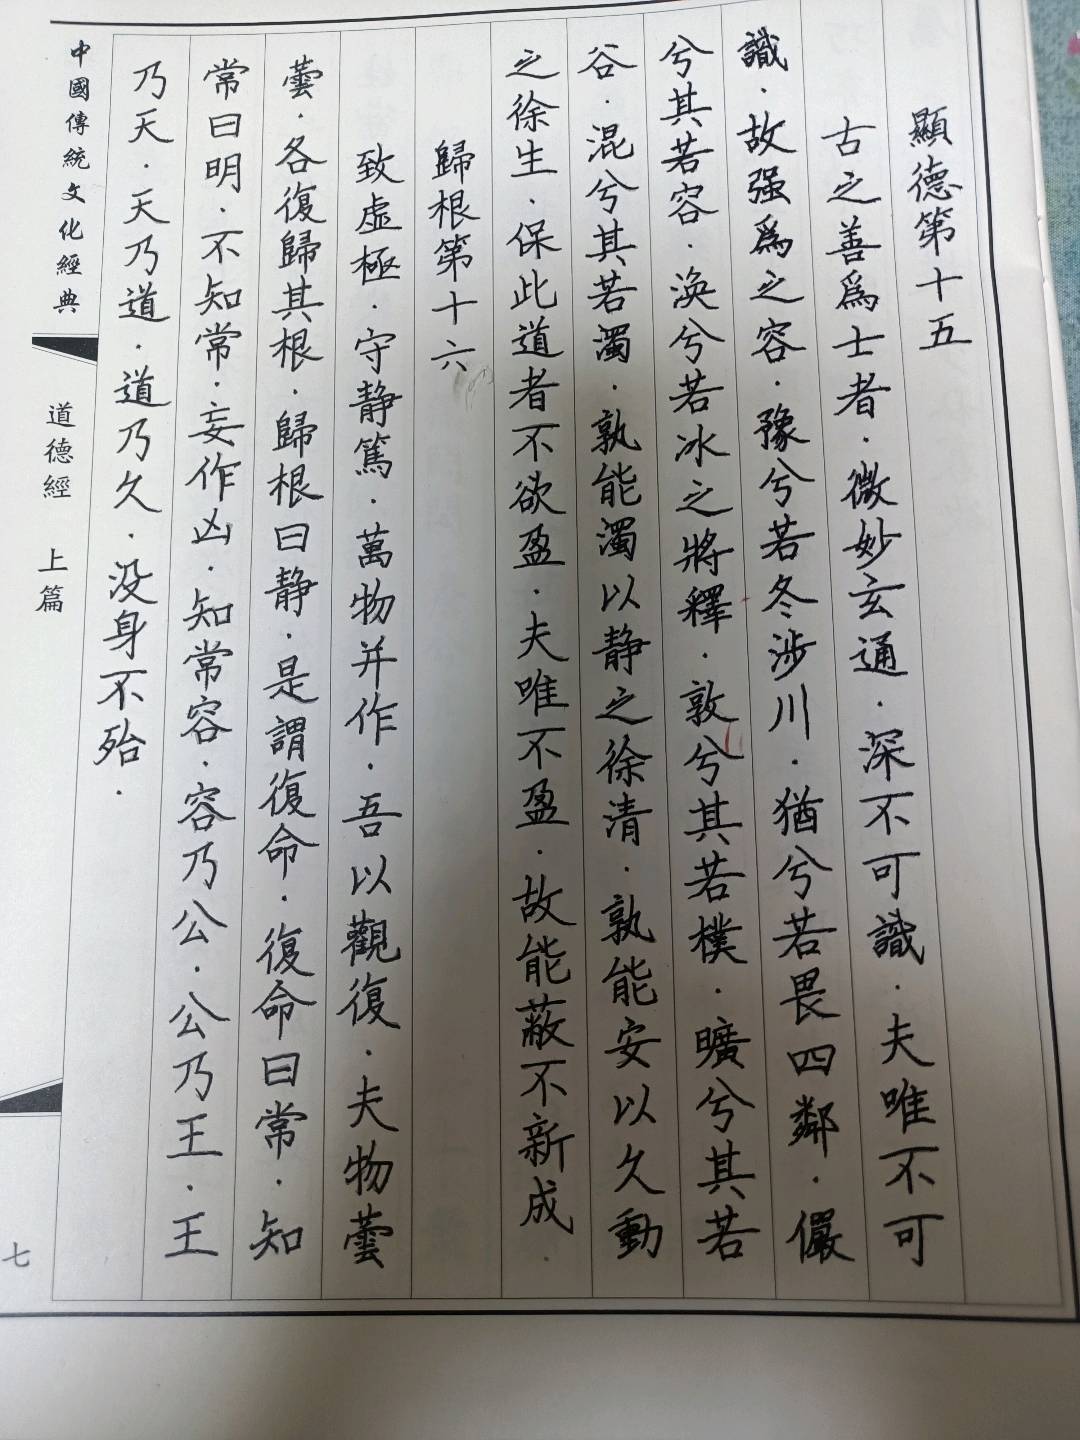 顯德第十五
古之善爲士者．微妙玄通．深不可識．夫唯不可
識．故强爲之容．豫兮若冬涉川．猶兮若畏四鄰．儼
兮其若容．渙兮若冰之將釋．敦兮其若樸．曠兮其若
谷．混兮其若濁．孰能濁以静之徐清．孰能安以久動
之徐生．保此道者不欲盈．夫唯不盈．故能蔽不新成．
歸根第十六
致虚極．守静篤．萬物并作．吾以觀復．夫物蕓
蕓．各復歸其根．歸根曰静．是謂復命．復命曰常．知
常曰明．不知常．妄作凶．知常容．容乃公．公乃王．王
乃天．天乃道．道乃久．没身不殆．
中國傳統文化經典
道德經 上篇
七